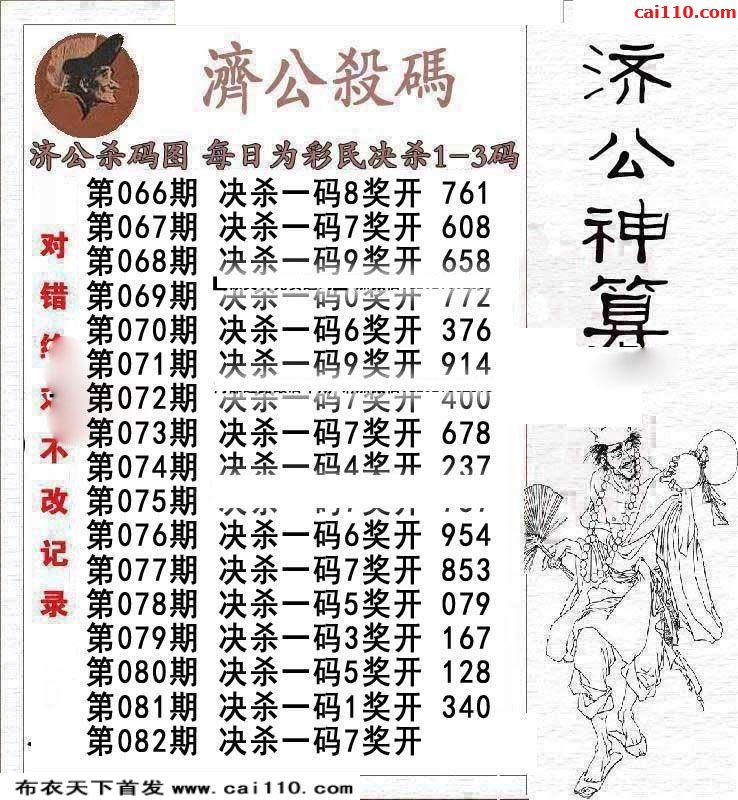 cai110.com
濟公殺碼
济公杀码图 每日为彩民决杀1-3码
第066期 决杀一码8奖开 761
第067期 决杀一码7奖开 608
第068期 决杀一码9奖开 658
第069期 决杀一码0奖开 772
第070期 决杀一码6奖开 376
第071期 决杀一码9奖开 914
第072期 决杀一码7奖开 400
第073期 决杀一码7奖开 678
第074期 决杀一码4奖开 237
第075期
第076期 决杀一码6奖开 954
第077期 决杀一码7奖开 853
第078期 决杀一码5奖开 079
第079期 决杀一码3奖开 167
第080期 决杀一码5奖开 128
第081期 决杀一码1奖开 340
第082期 决杀一码7奖开
对错
不改记录
济公神算
布衣天下首发 www.cai110.com